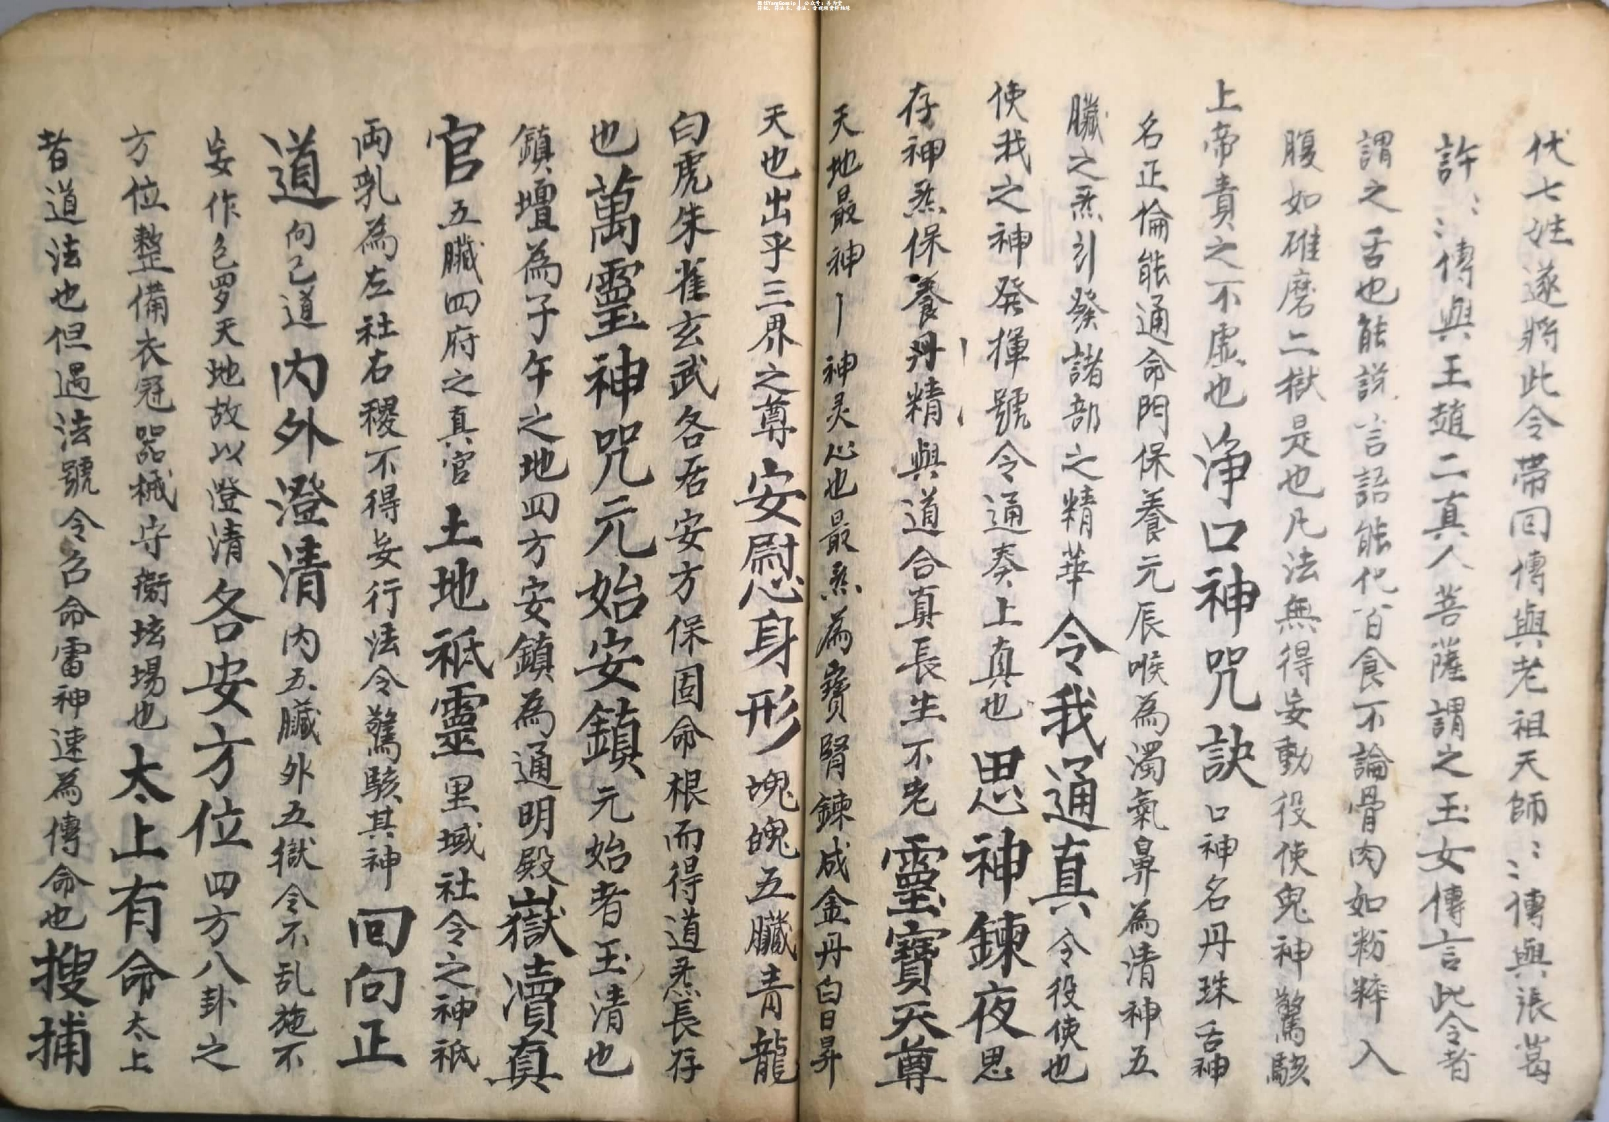 代七姓遂將此令帶回傳與老祖天師〻傳與張葛
許〻〻傳與王趙二真人菩薩謂之玉女傳言此令者
謂之舌也能說言語能化百食不論骨肉如粉粹入
腹如碓磨二獄是也凡法無得妄動役使鬼神驚駭
上帝責之不虛也淨口神咒訣口神名丹珠舌神
名正倫能通命門保養元辰喉為濁氣鼻為清神五
臟之炁引發諸部之精華令我通真令役使也
使我之神發揮號令通奏上真也思神鍊夜思
存神炁保養丹精與道合真長生不老靈寶天尊
天地最神丨神灵心也最炁為寶腎鍊成金丹白日昇
天也出乎三界之尊安慰身形塊魄五臟青龍
白虎朱雀玄武各居安方保固命根而得道炁長存
也萬靈神咒元始安鎮元始者玉清也
鎮壇為子午之地四方安鎮為通明殿嶽瀆真
官五臟四府之真官土地祇靈里域社令之神祇
両乳為左社右稷不得妄行法令驚駭其神回向正
道向己道內外澄清內五臟外五獄令不乱施不
妄作色罗天地故以澄清各安方位四方八卦之
方位整備衣冠器械守衛坛場也太上有命太上
者道法也但遇法號令召命雷神速為傳命也搜捕